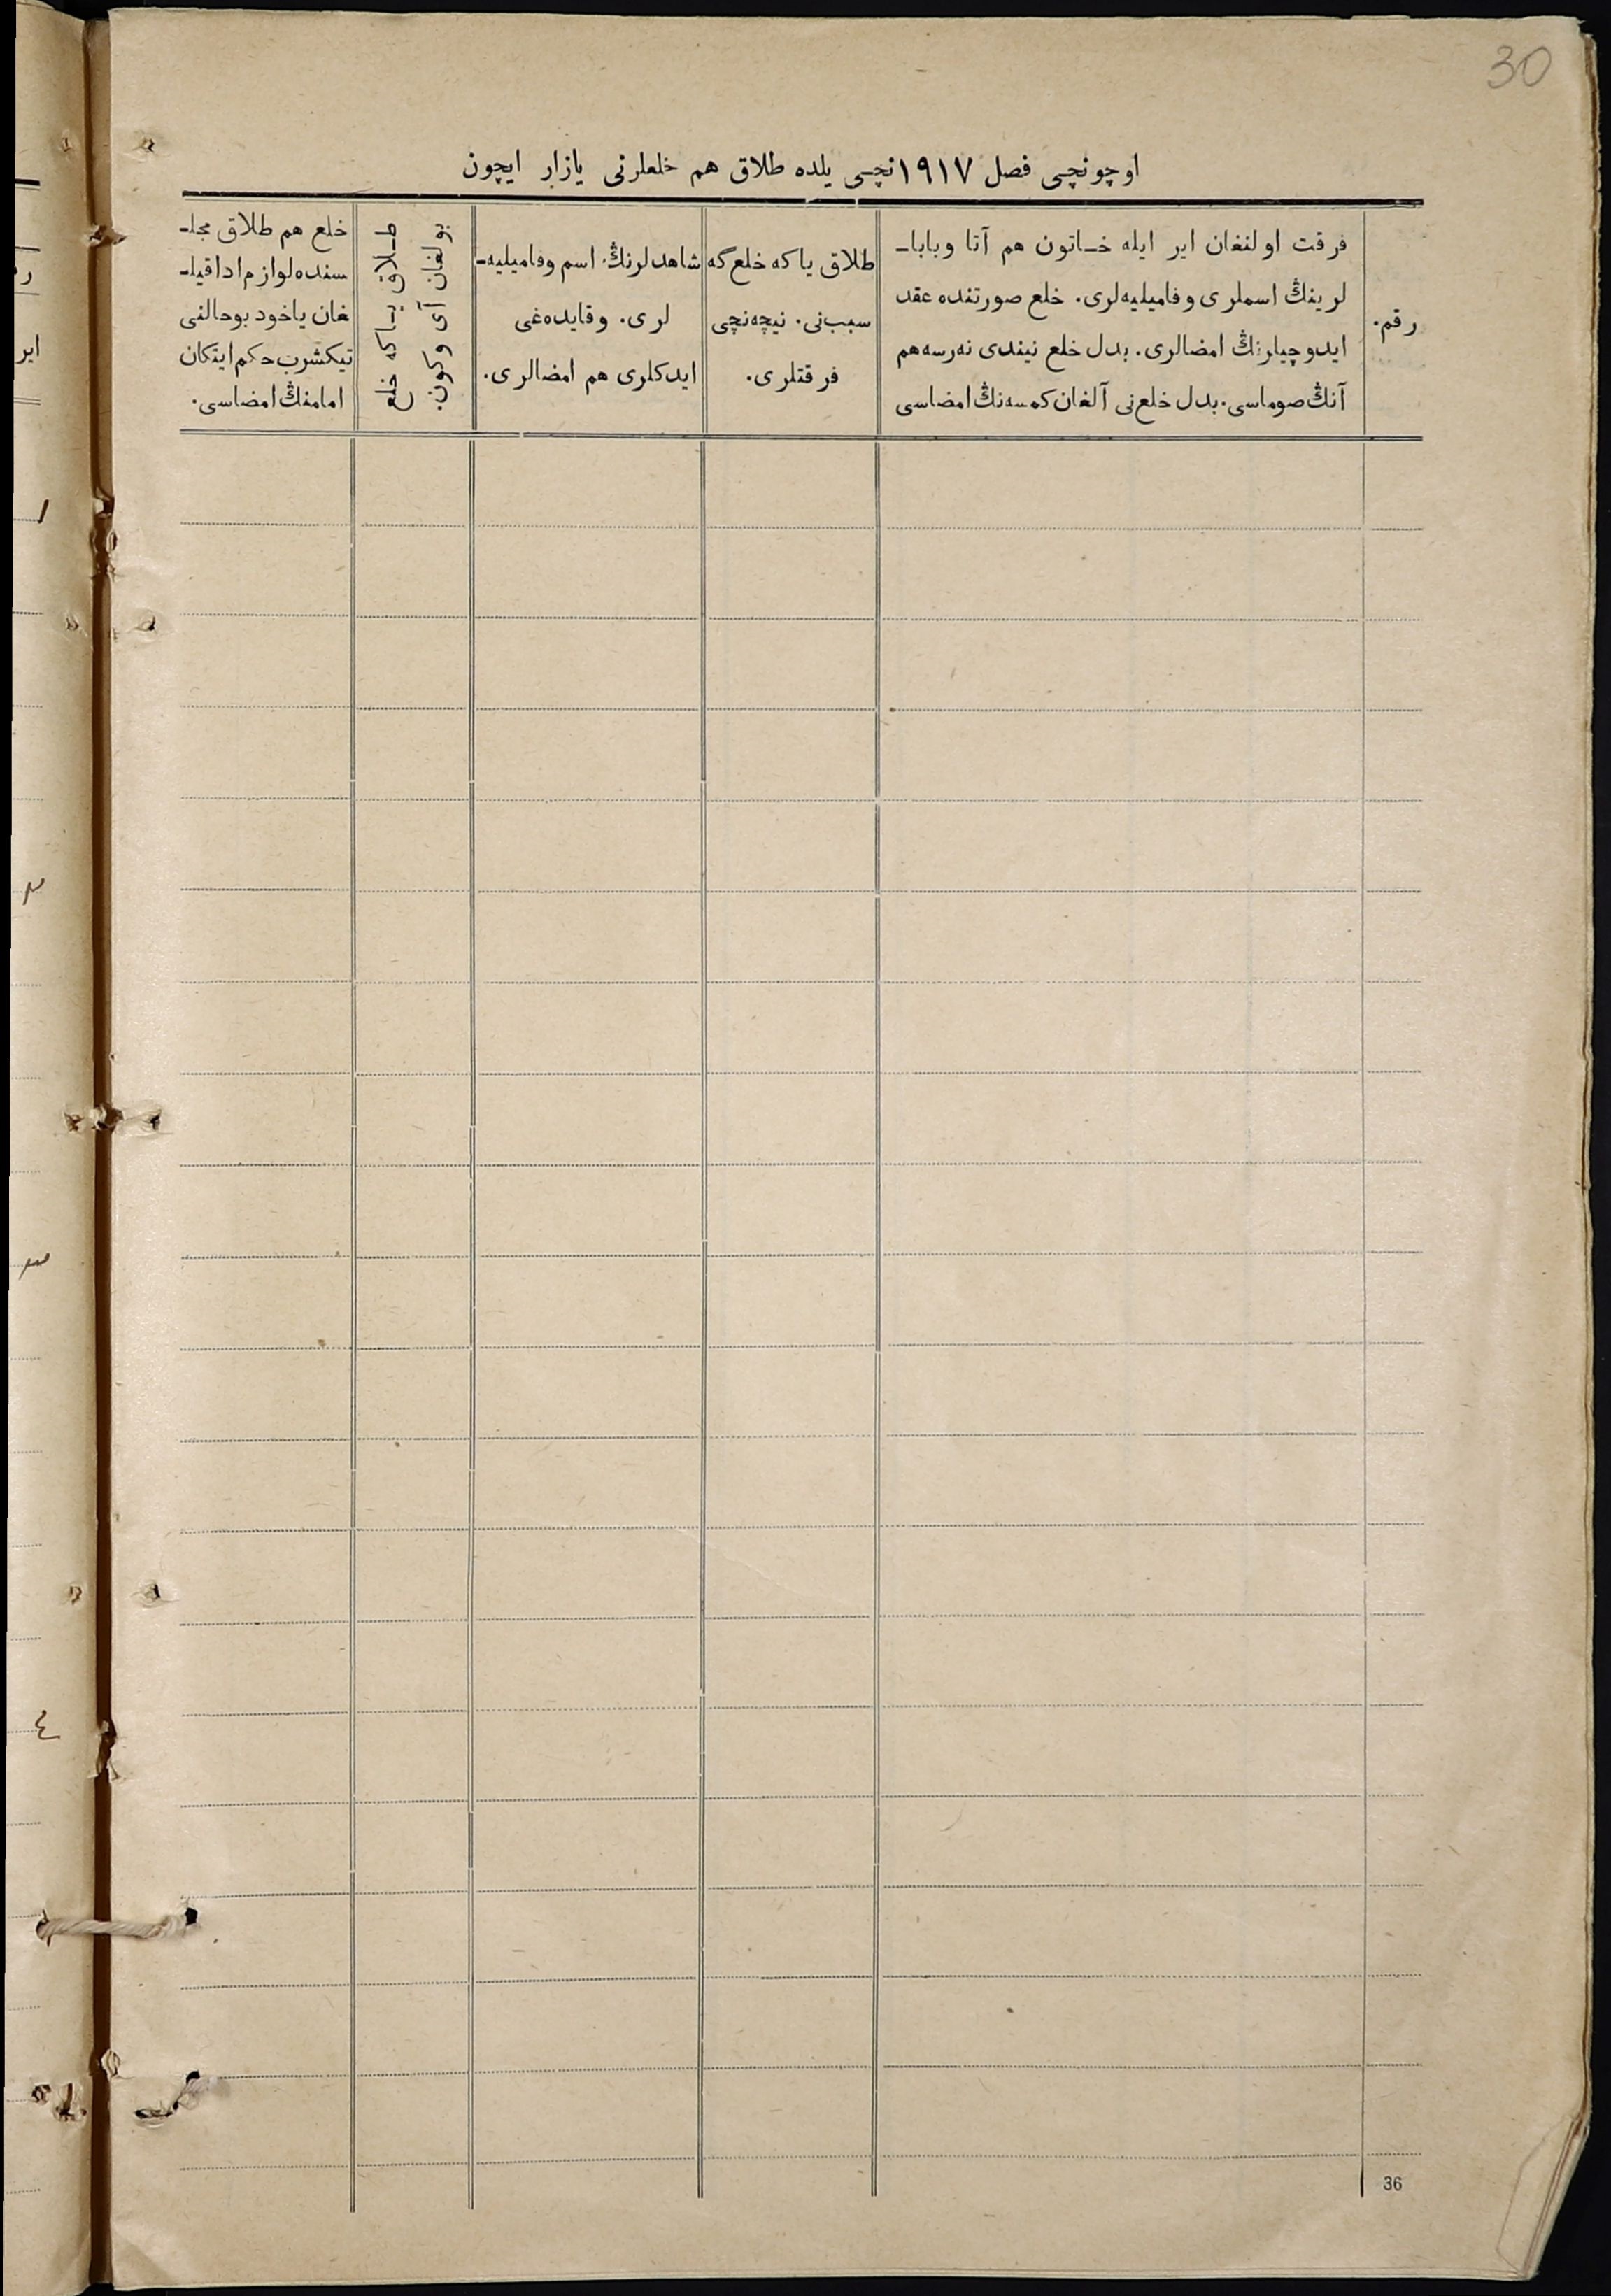 30
اوچونچی فصل ١٩١٧نچی یلده طلاق هم خلعلرنی یازار ایچون
رقم.
فرقت اولنغان ایر ایله خـاتون هم آتا وبابا-
لرینڭ اسملری وفامیلیه‌لری. خلع صورتنده عقد
ایدوچیلرنڭ امضالری. بدل خلع نیندی نه‌رسه هم
آنڭ صوماسی. بدل خلع‌نی آلغان کمسه‌نڭ امضاسی
طلاق یاکه خلع گه
سبب‌نی. نیچه‌نچی
فرقتلری.
شاهدلرنڭ اسم وفامیلیه-
لری. وقایده‌غی
ایدکلری هم امضالری.
طـلاق یـاکه خلع
بولغان آی وکون.
خلع هم طلاق مجلـ-
سنده لوازم ادا قیلـ-
غان یاخود بوحالنی
تیکشرب حکم ایتکان
امامنڭ امضاسی.
36
١
٢
٣
٤